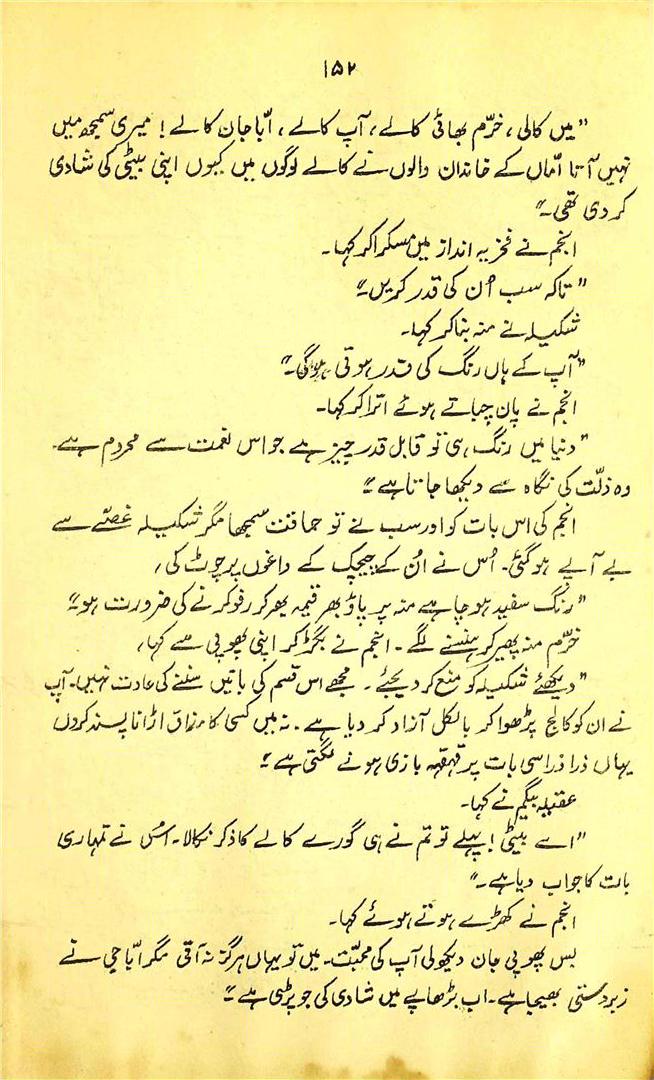 ۱۵۲
"میں کالی، خرّم بھائی کالے، آپ کالے، ابّا جان کالے! میری سمجھ میں
نہیں آتا امّاں کے خاندان والوں نے کالے لوگوں میں کیوں اپنی بیٹی کی شادی
کر دی تھی۔"
انجم نے فخریہ انداز میں مسکرا کر کہا۔
"تاکہ سب اُن کی قدر کریں۔"
شکیلہ نے منہ بنا کر کہا۔
"آپ کے ہاں رنگ کی قدر ہوتی ہوگی۔"
انجم نے پان چباتے ہوئے اترا کر کہا۔
"دنیا میں رنگ ہی تو قابل قدر چیز ہے جو اس نعمت سے محروم ہے۔
وہ ذلّت کی نگاہ سے دیکھا جاتا ہے۔"
انجم کی اس بات کو اور سب نے تو حماقت سمجھا مگر شکیلہ غصّے سے
بے آپے ہو گئی۔ اُس نے اُن کے چیچک کے داغوں پر چوٹ کی،
"رنگ سفید ہو چاہے منہ پر پاؤ بھر قیمہ بھر کر رفو کرنے کی ضرورت ہو۔"
خرّم منہ پھیر کر ہنسنے لگے۔ انجم نے بگڑ کر اپنی پھوپی سے کہا،
"دیکھئے شکیلہ کو منع کر دیجئے۔ مجھے اس قسم کی باتیں سننے کی عادت نہیں۔ آپ
نے ان کو کالج پڑھوا کر بالکل آزاد کر دیا ہے۔ نہ میں کسی کا مذاق اڑانا پسند کروں
یہاں ذرا ذرا سی بات پر قہقہہ بازی ہونے لگتی ہے۔"
عقیلہ بیگم نے کہا۔
"اے بیٹی! پہلے تو تم نے ہی گورے کالے کا ذکر نکالا۔ اس نے تمہاری
بات کا جواب دیا ہے۔"
انجم نے کھڑے ہوتے ہوئے کہا۔
بس پھوپی جان دیکھ لی آپ کی محبّت۔ میں تو یہاں ہرگز نہ آتی مگر ابّا جی نے
زبردستی بھیجا ہے۔ اب بڑھاپے میں شادی کی جو پڑی ہے۔"